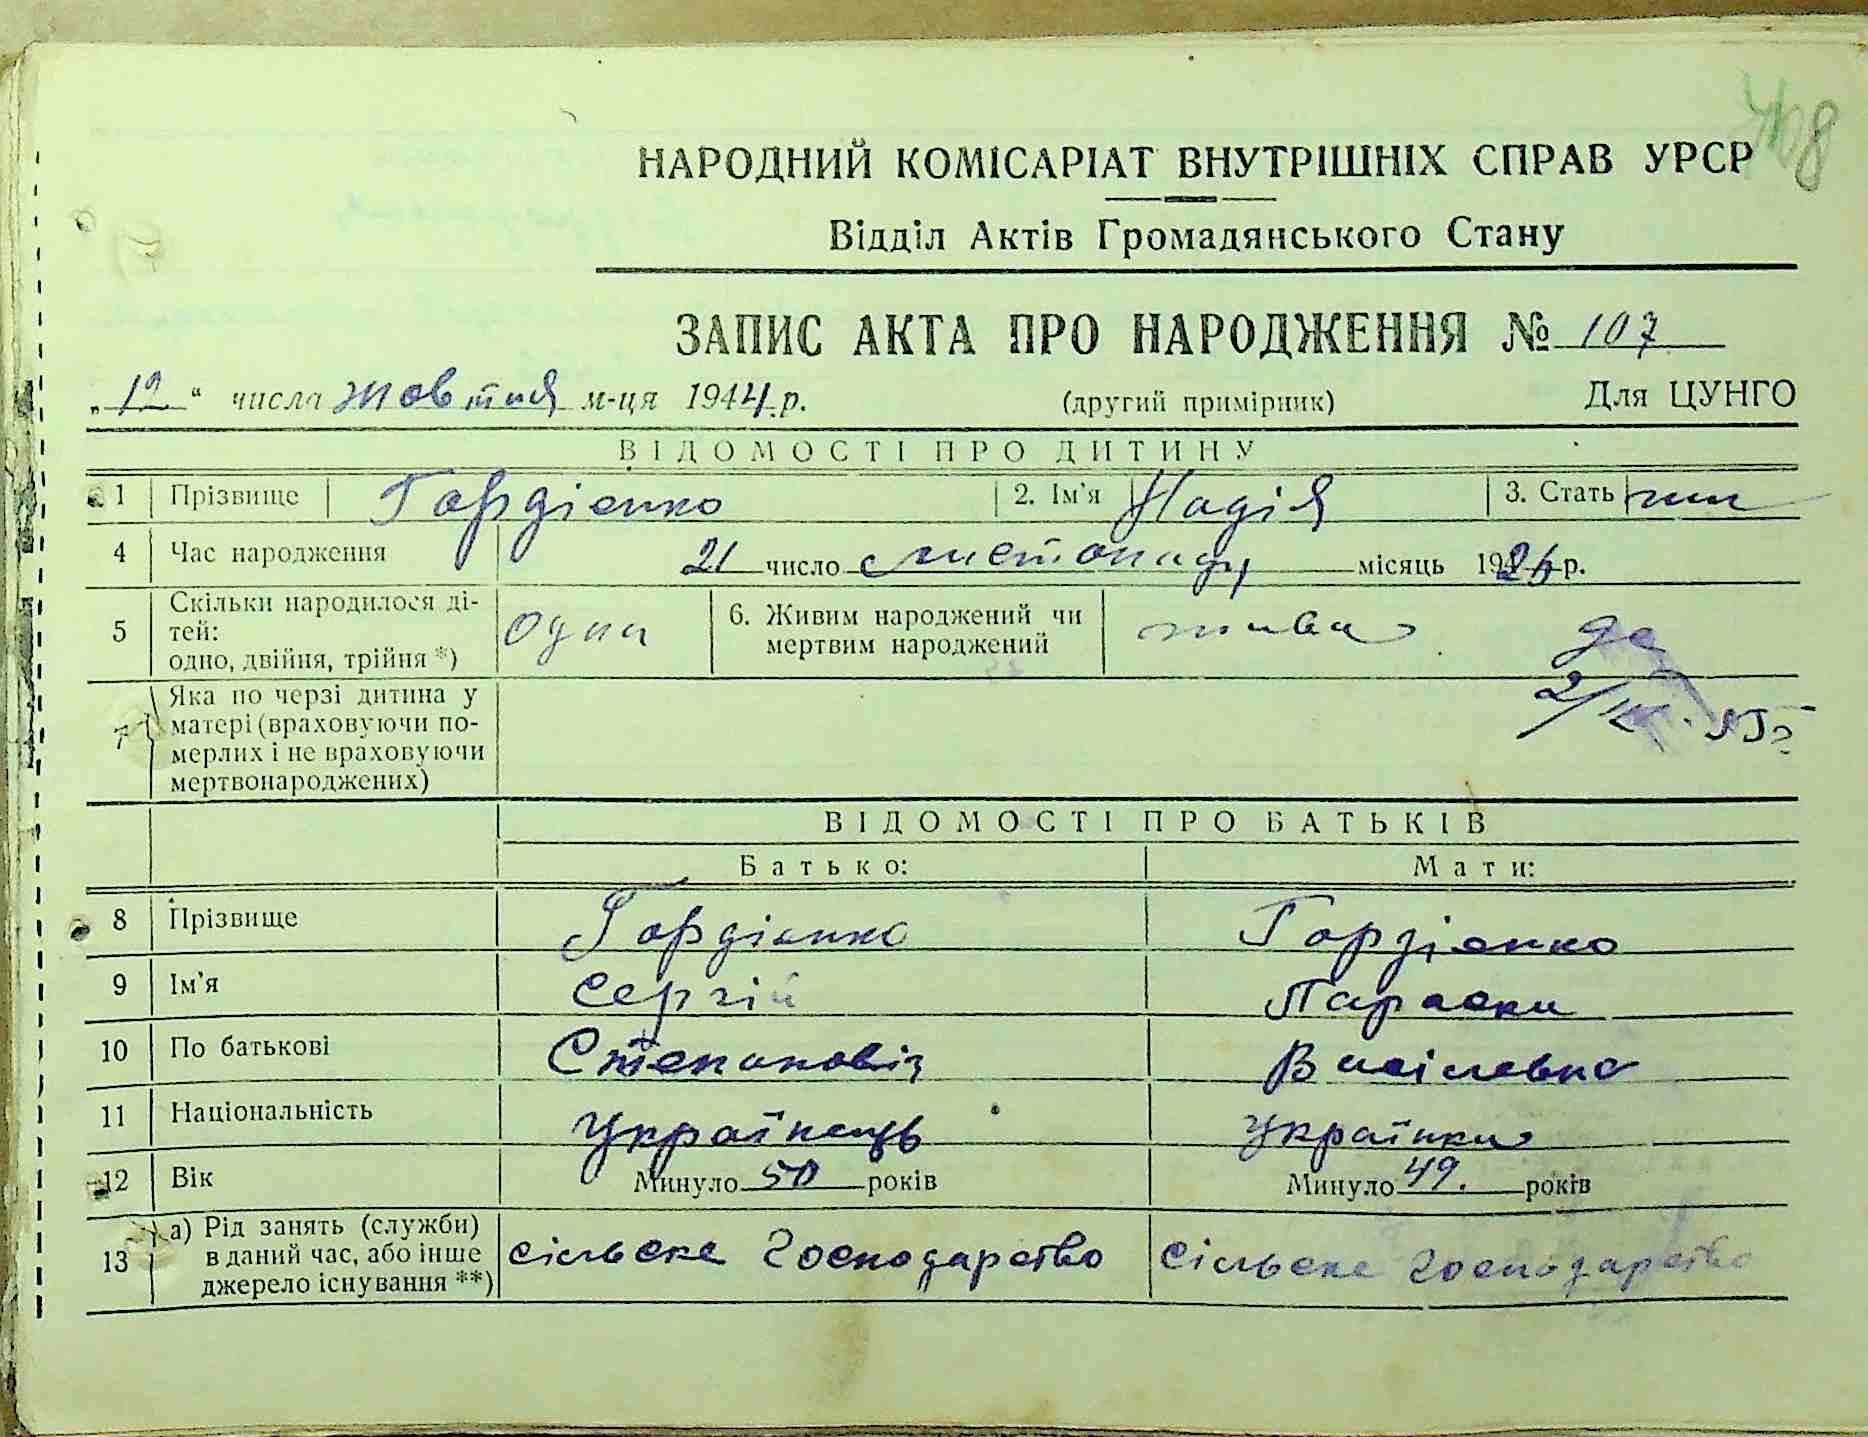 НАРОДНИЙ КОМІСАРІАТ ВНУТРІШНІХ СПРАВ УРСР
Відділ Актів Громадянського Стану
ЗАПИС АКТА ПРО НАРОДЖЕННЯ № 107
„12“ числа жовтня м-ця 1944 р. (другий примірник) Для ЦУНГО
ВІДОМОСТІ ПРО ДИТИНУ
1 Прізвище Гордієнко 2. Ім'я Надія 3. Стать жін
4 Час народження 21 число листопаду місяць 1926 р.
5 Скільки народилося ді-
тей:
одно, двійня, трійня *) одна 6. Живим народжений чи
мертвим народжений жива
7 Яка по черзі дитина у
матері (враховуючи по-
мерлих і не враховуючи
мертвонароджених)
ВІДОМОСТІ ПРО БАТЬКІВ
Батько: Мати:
8 Прізвище Гордієнко Гордієнко
9 Ім'я Сергій Параска
10 По батькові Степановіч Васілевна
11 Національність Українець Українка
12 Вік Минуло 50 років Минуло 49. років
13 а) Рід занять (служби)
в даний час, або інше
джерело існування **) сільське господарство сільське господарство